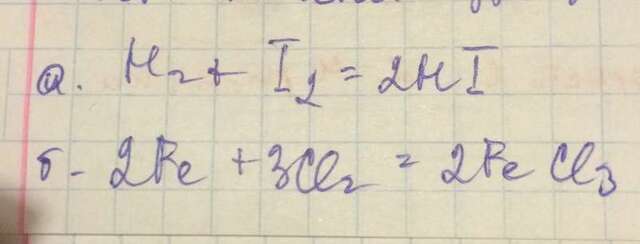 а. H₂ + I₂ = 2HI
б- 2Fe + 3Cl₂ = 2FeCl₃